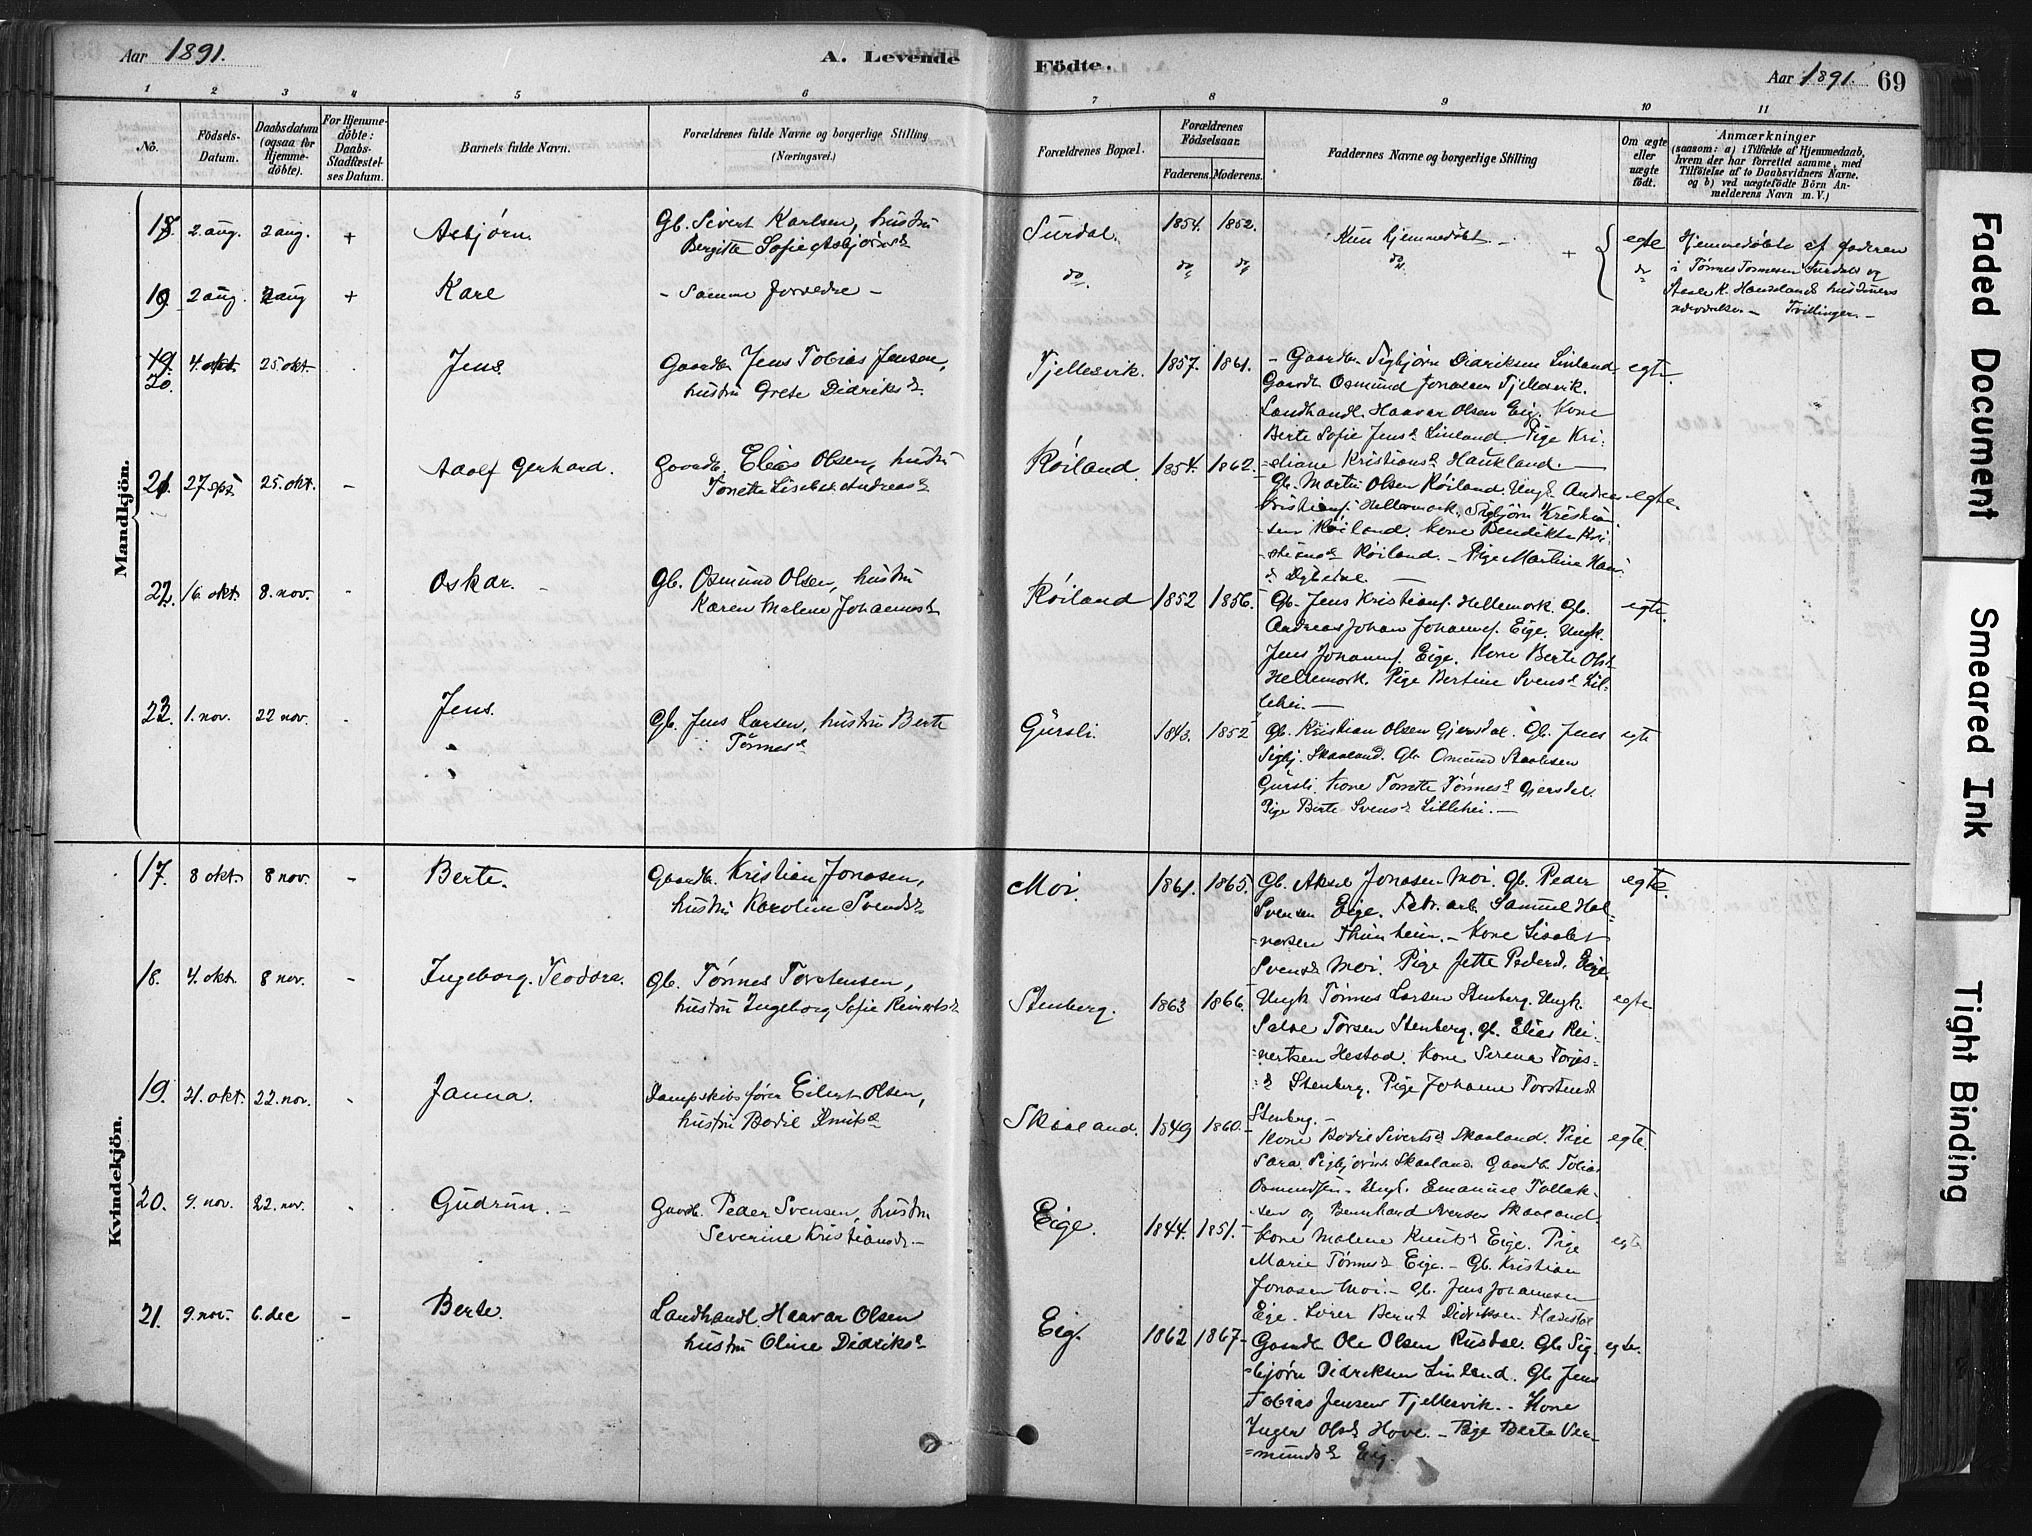 Aar 1891.
A. Levende
Födte.
Aar 1891. 69
1 2 3 4 5 6 7 8 9 10 11
No.
Födsels-
Datum.
Daabsdatum
(ogsaa for
Hjemme-
döbte).
For Hjemme-
döbte:
Daabs-
Stadfæstel-
ses Datum.
Barnets fulde Navn.
Forældrenes fulde Navne og borgerlige Stilling
(Næringsvei.)
Forældrenes Bopæl.
Forældrenes
Födselsaar.
Faderens. Moderens.
Faddernes Navne og borgerlige Stilling
Om ægte
eller
uægte
födt.
Anmærkninger
(saasom: a) i Tilfælde af Hjemmedaab,
hvem der har forrettet samme, med
Tilföielse af to Daabsvidners Navne.
og b) ved uægtefödte Börn An-
melderens Navn m. V.)
Mandkjön.
18. 2 aug. 2 aug. + Asbjørn. Gb. Sivert Karlsen, hustru
Bergitte Sofie Asbjørnsd
Surdal. 1854. 1852. Kun hjemmedøbt. + egte
Hjemmedøbte af faderen
i Tønnes Tønnesen Surdals og
nærværelse. Tvillinger.
19 2 aug. 2 aug + Kare - Samme forældre -
do do do do do
20 4. okt. 25. okt. Jens. Gaardb. Jens Tobias Jensen,
hustru Grete Didriksd.
Tjellesvik. 1857. 1861. - Gaardb. Sigbjørn Didriksen Linland
Gaardb. Osmund Jonassen Tjellesvik.
Landhandl. Haavar Olsen Eig. Kone
Berte Sofie Jensd Linland. Pige Kri-
stiane Kristiansd Haukland.
egte.
21. 27 sept 25. okt. - Adolf Gerhard. Gaardb. Elias Olsen, hustru
Tonette Lisabet Andreasd
Røiland. 1854. 1862. Gb. Martin Olsen Røiland. Ungk. Andreas
Kristians. Hellemork. Sigbjørn Kristian-
sen Røiland. Kone Bendikte Kri-
stiansd Røiland. - Pige Martine Han-
egte.
22. 16. okt. 8. nov. - Oskar. Gb. Osmund Olsen, hustru
Karen Malene Johannesd
Røiland 1852 1856. Gb. Jens Kristians. Hellemork. Gb.
Andreas Johan Johannes. Eige. Ungk.
Jens Johannes. Eige. Kone Berte Olsd
Hellemork. Pige Bertine Svensd Lil-
lehei.
egte.
23. 1. nov. 22 nov. - Jens. Gb. Jens Larsen, hustru Berte
Tønnesd
Gursli. 1843. 1852 Gb. Kristian Olsen Gjersdal. Gb. Jens
Sigbj. Skaaland. Gb. Osmund Staalesen
Gursli. Kone Tonette Tønnesd Gjersdal.
Pige Berte Svensd Lillehei.
egte
Kvindekjön.
17. 8 okt. 8 nov. - Berte. Gaardb. Kristian Jonasen,
hustru Karoline Svendsd
Moi. 1861. 1865. Gb. Aksel Jonasen Moi. Gb. Peder
Svensen Eige. Fabr. arb. Samuel Hal-
vorsen Thunheim. - Kone Lisabet
Svensd Moi. Pige Jette Pedersd. Eige.
egte.
18. 4. okt. 8 nov. - Ingeborg Teodora. Gb. Tønnes Torstensen,
hustru Ingeborg Sofie Reinertsd
Stenberg. 1863 1866. Ungk Tønnes Larsen Stenberg. Ungk.
Salve Torsen Stenberg. Gb. Elias Rei-
nertsen Hestad. Kone Serena Torjs-
d Stenberg. Pige Johanne Torstensd
Stenberg. -
egte
19. 21. okt. 22. nov. - Janna. Dampskibsfører Eilert Olsen,
hustru Bodil Knutsd
Skaaland. 1849 1860. Kone Bodil Sivertsd Skaaland. Pige
Sara Sigbjørnsd Skaaland. Gaardb. Tobias
Osmundsen. Ungk. Emanuel Tollak-
sen og Bernhard Iversen Skaaland.
egte.
20. 9. nov. 22. nov. - Gudrun. Gaardb. Peder Svensen, hustru
Severine Kristiansd. -
Eige. 1844. 1851. Kone Malene Knutsd Eige. Pige
Marie Tønnesd Eige. - Gb. Kristian
Jonasen Moi. - Gb. Jens Johannesen
Eige. Lærer Bernt Didriksen Fladstøl
egte
21. 9. nov. 6. dec - Berte. Landhandl. Haavar Olsen
hustru Oline Didriksd
Eig. 1862 1867 Gaardb. Ole Olsen Rusdal. Gb. Sig-
bjørn Didriksen Linland. Gb. Jens
Tobias Jensen Tjellesvik. - Kone
Inger Olsd Hove. - Pige Berte Ver-
mundsd Eig.
egte.
Faded Document
Smeared Ink
Tight Binding